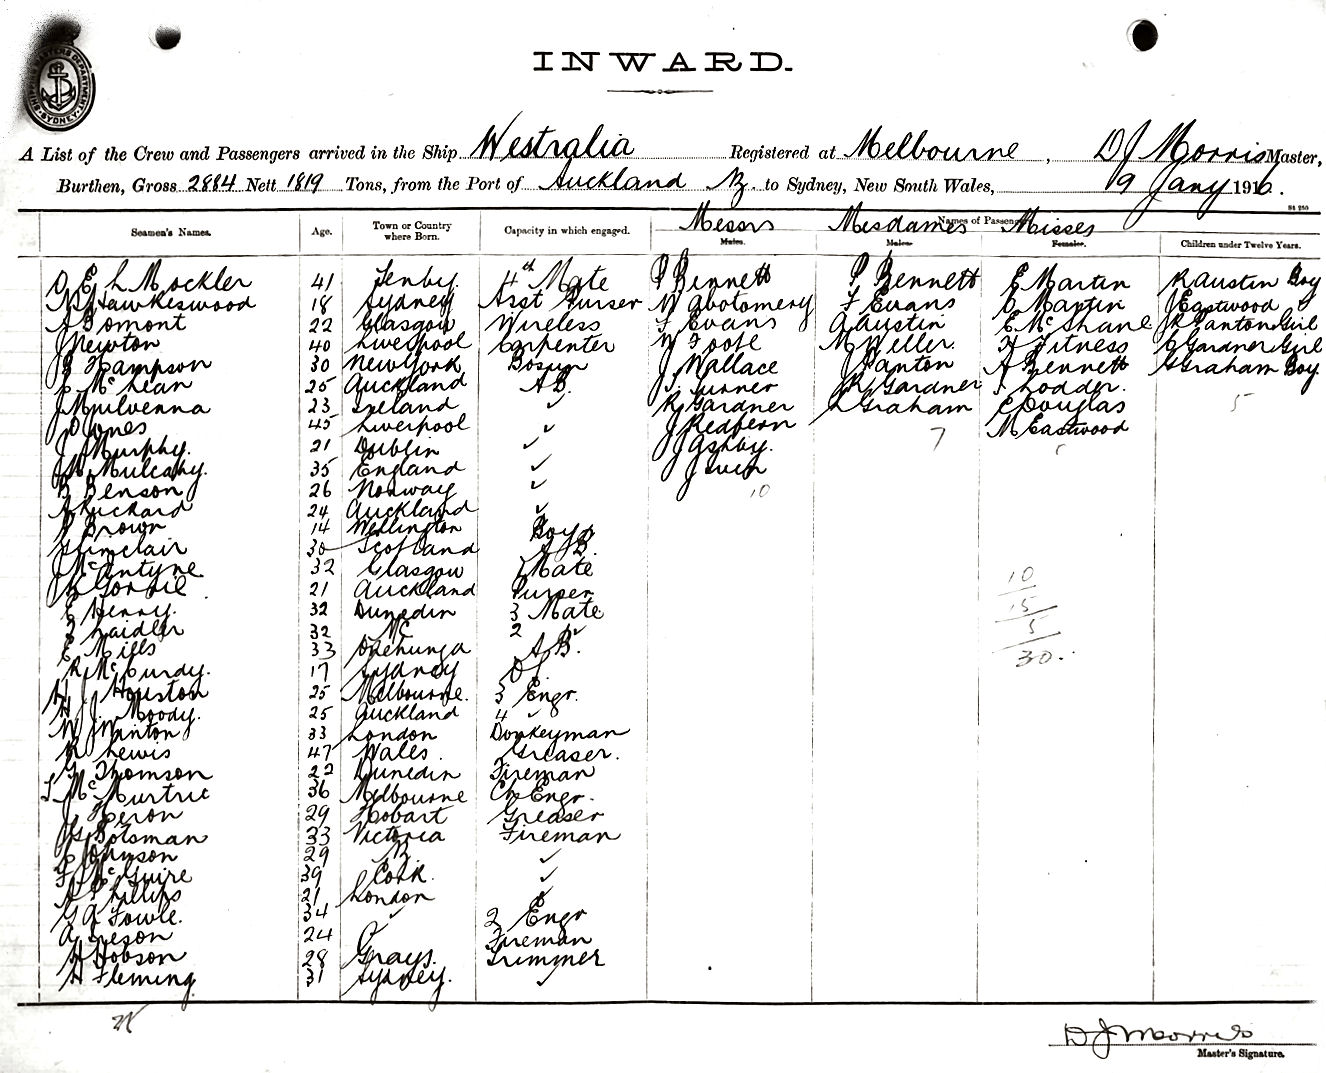 SHIPPING MASTERS DEPARTMENT SYDNEY
INWARD.
A List of the Crew and Passengers arrived in the Ship Westralia Registered at Melbourne, D J Morris Master,
Burthen, Gross 2884 Nett 1819 Tons, from the Port of Auckland NZ to Sydney, New South Wales, 19 Jany 1916.
St 250
Seamen's Names. Age. Town or Country where Born. Capacity in which engaged. Names of Passengers
Messrs Mesdames Misses
Males. Males. Females. Children under Twelve Years.
Mockler 41 Tenby. 4th Mate P Bennett P Bennett E Martin R Austin Boy
Hawkeswood 18 Sydney Asst Purser W Abotomery F Evans O Martin J Eastwood
Gomont 22 Glasgow Wireless F Evans A Austin E McShane R Panton Girl
J Newton 40 Liverpool Carpenter W Foote M Weller. H Fitness C Gardner Girl
Hampson 30 New York Bosun J Wallace J Panton A Bennett H Graham Boy
McLean 25 Auckland A B. J. Turner R Gardner Lodder.
J Mulvenna 23 Ireland ✓ R Gardner L Graham C Douglas 5
J D Jones 45 Liverpool ✓ J Redfern M Eastwood
J Murphy. 21 Dublin ✓ J Ashby. 7
Mulcahy. 35 England ✓ J Swin
B Benson 26 Norway ✓ 10
Ruchard 24 Auckland ✓
Brown 14 Wellington Boy
Sinclair 30 Scotland A B.
J McAntyne 32 Glasgow 1 Mate
21 Auckland Purser
E Henry. 32 Dunedin 3 Mate
Laidler 32 2 ✓
E Mills 33 Onehunga A B.
R McCurdy. 17 Sydney
H J Houston 25 Melbourne. 3 Engr.
H J Moody. 25 Auckland 4 ✓
W J Winton 33 London Donkeyman
R Lewis 47 Wales. Greaser.
G Thomson 22 Dunedin Fireman
McMurtrie 36 Melbourne Ch Engr.
J Heron 29 Hobart Greaser
Botsman 33 Victoria Fireman
Johnson 29 ✓
F McGuire 39 Cork. ✓
A Phillips 21 London ✓
G A Fowle. 34 ✓ 2 Engr
24 Fireman
H Hobson 28 Grays. Trimmer
H Fleming 31 Sydney. ✓
10
15
5
30.
D J Morris
Master's Signature.